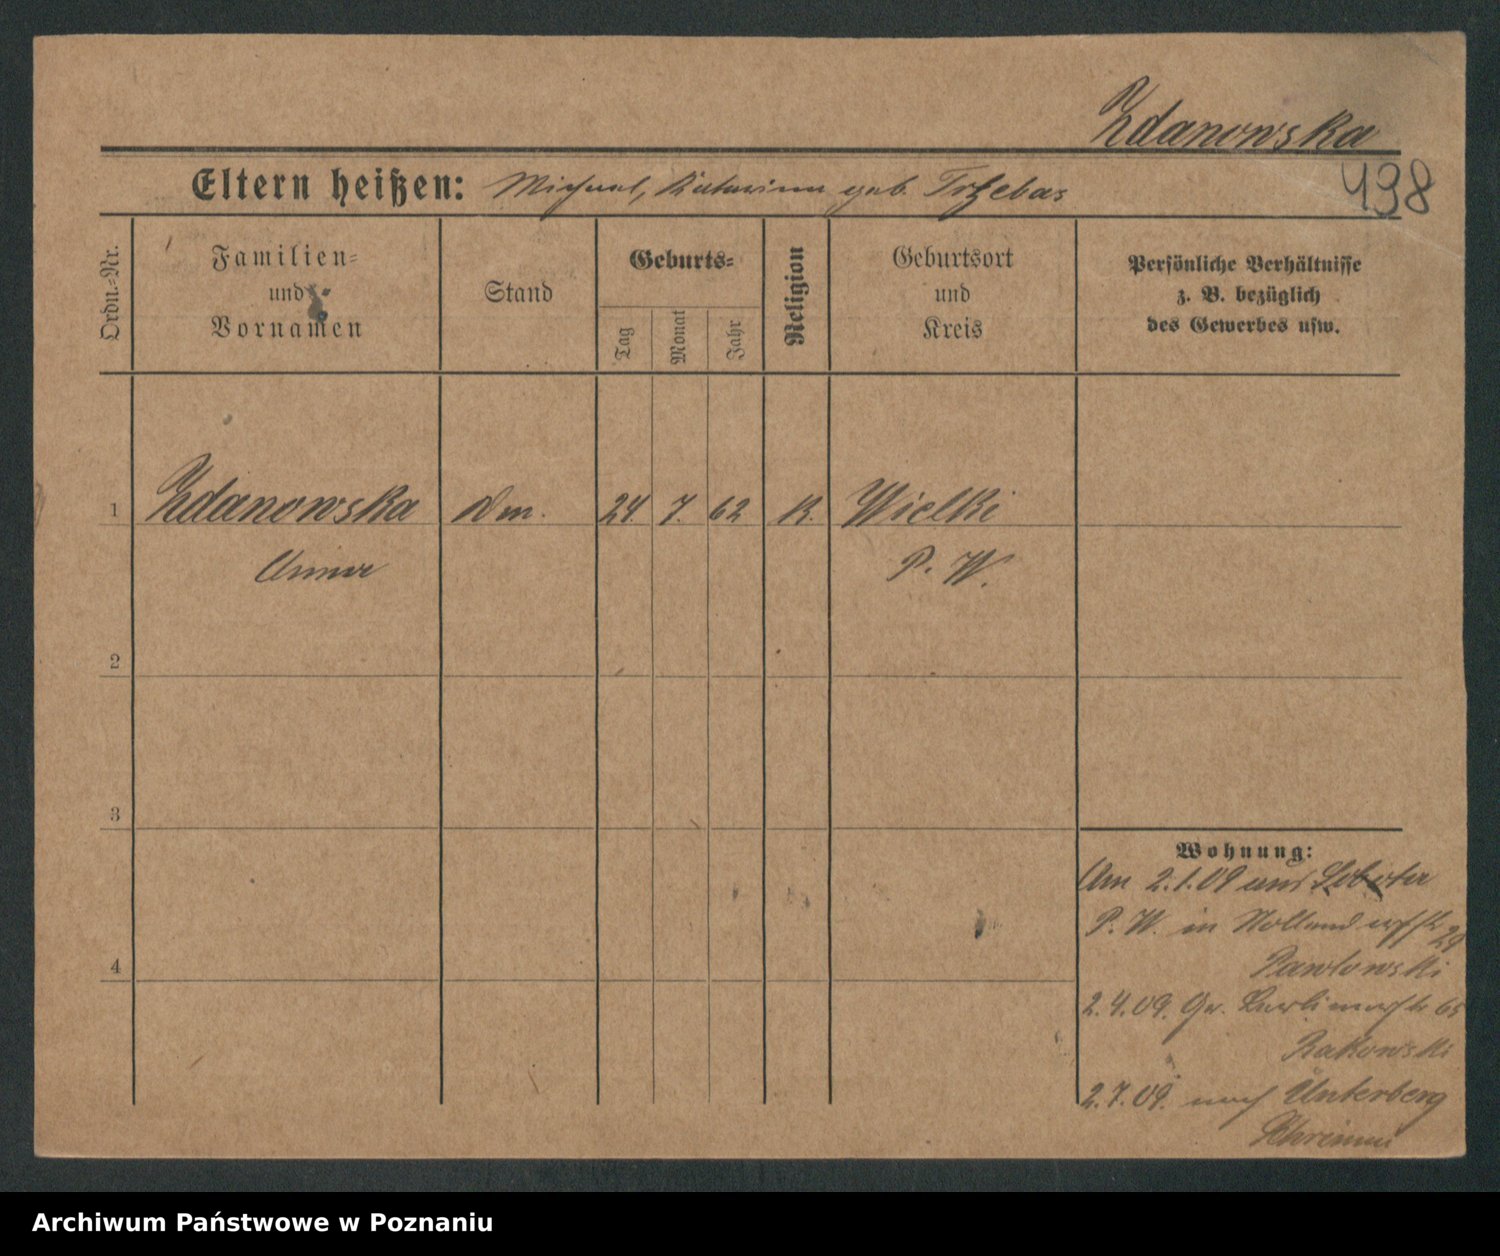 Zdanowska
498
Eltern heißen: Michael, Katarina geb. Trzebas
Ordn.-Nr.
Familien-
und
Vornamen
Stand
Geburts-
Tag
Monat
Jahr
Religion
Geburtsort
und
Kreis
Persönliche Verhältnisse
z. B. bezüglich
des Gewerbes usw.
1 Zdanowska 24. 7. 62 K. Wielki
Anna P. W.
2
3
4
Wohnung:
Am 2.1.09 aus
P. W. in
Pawlowski
2.4.09. Gr. Berlinerstr 65
Rakowski
2.7.09. nach Unterberg
Schrimm
Archiwum Państwowe w Poznaniu